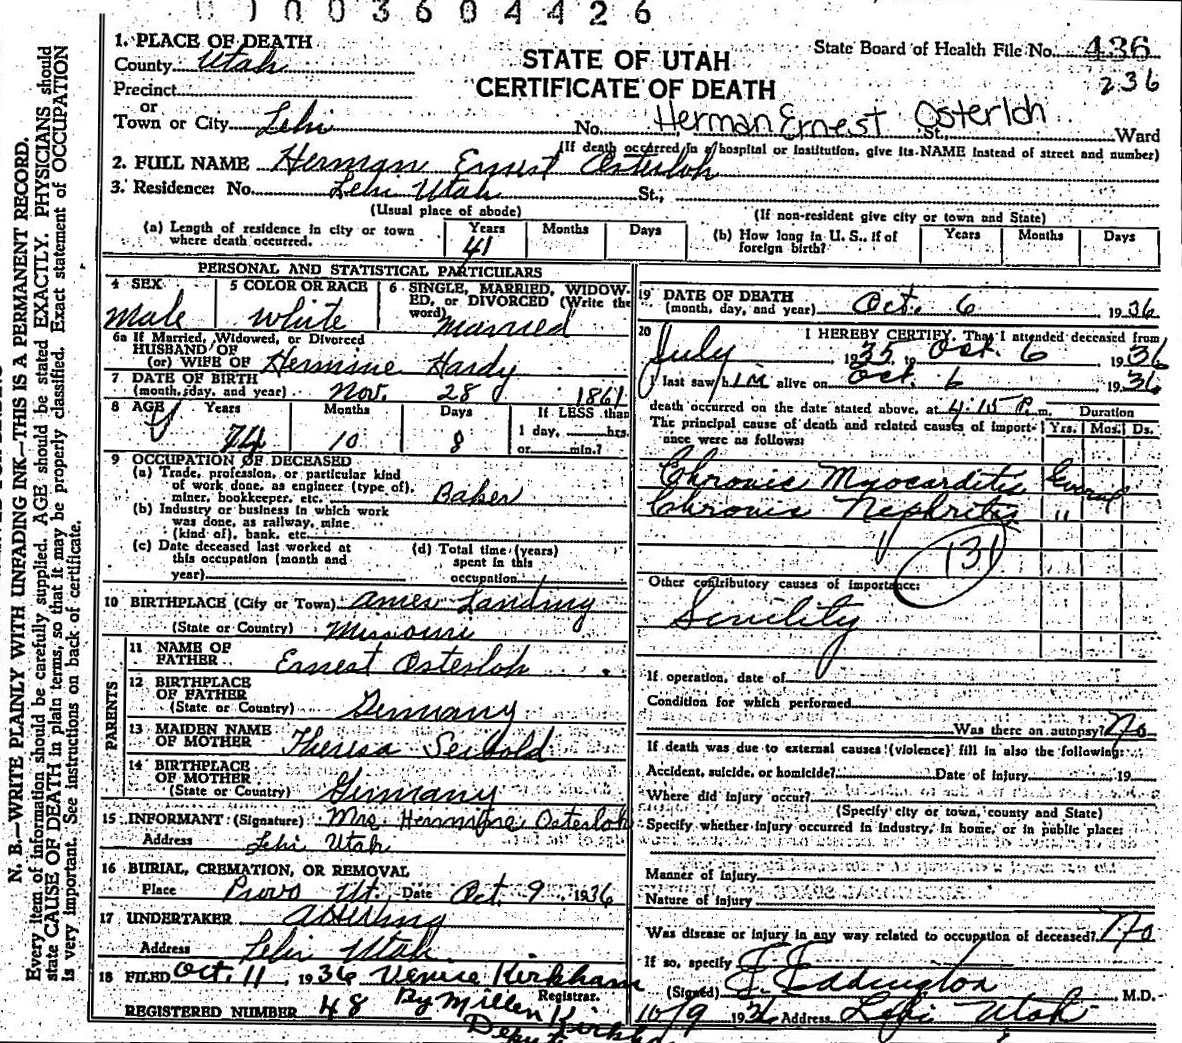 0 1 0 0 3 6 0 4 4 2 6
STATE OF UTAH
CERTIFICATE OF DEATH
State Board of Health File No. 436
236
1. PLACE OF DEATH
County Utah
Precinct
or
Town or City Lehi No. Herman Ernest Osterloh St. Ward
(If death occurred in a hospital or institution, give its NAME instead of street and number)
2. FULL NAME Herman Ernest Osterloh
3. Residence: No. Lehi Utah St.,
(Usual place of abode) (If non-resident give city or town and State)
(a) Length of residence in city or town where death occurred. Years 41 Months Days
(b) How long in U. S., if of foreign birth? Years Months Days
PERSONAL AND STATISTICAL PARTICULARS
4 SEX Male
5 COLOR OR RACE White
6 SINGLE, MARRIED, WIDOWED, or DIVORCED (Write the word) Married
6a If Married, Widowed, or Divorced
HUSBAND OF
(or) WIFE OF Hermine Hardy
7 DATE OF BIRTH
(month, day, and year) Nov. 28 1861
8 AGE Years 74 Months 10 Days 8 If LESS than 1 day, hrs. or min.?
9 OCCUPATION OF DECEASED
(a) Trade, profession, or particular kind of work done, as engineer (type of), miner, bookkeeper, etc. Baker
(b) Industry or business in which work was done, as railway, mine (kind of), bank, etc.
(c) Date deceased last worked at this occupation (month and year)
(d) Total time (years) spent in this occupation
10 BIRTHPLACE (City or Town) Landing
(State or Country) Missouri
PARENTS
11 NAME OF FATHER Ernest Osterloh
12 BIRTHPLACE OF FATHER
(State or Country) Germany
13 MAIDEN NAME OF MOTHER Theresa Seibold
14 BIRTHPLACE OF MOTHER
(State or Country) Germany
15 INFORMANT (Signature) Mrs. Hermine Osterloh
Address Lehi Utah
16 BURIAL, CREMATION, OR REMOVAL
Place Provo Ut. Date Oct. 9 1936
17 UNDERTAKER
Address Lehi Utah
18 FILED Oct. 11, 1936 Venice Kirkham
Registrar.
REGISTERED NUMBER 48 By Millen Kirkham
Deputy
19 DATE OF DEATH
(month, day, and year) Oct. 6 1936
20 I HEREBY CERTIFY, That I attended deceased from
July 1935 to Oct. 6 1936
I last saw him alive on Oct. 6 1936
death occurred on the date stated above, at 4:15 P. m.
Duration
The principal cause of death and related causes of importance were as follows: Yrs. Mos. Ds.
Chronic Myocarditis Several
Chronic Nephritis "
131
Other contributory causes of importance:
Senility
If operation, date of
Condition for which performed
Was there an autopsy? No
If death was due to external causes (violence) fill in also the following:
Accident, suicide, or homicide? Date of injury 19
Where did injury occur?
(Specify city or town, county and State)
Specify whether injury occurred in industry, in home, or in public place:
Manner of injury
Nature of injury
Was disease or injury in any way related to occupation of deceased? No
If so, specify
(Signed) E. Eddington M.D.
10/9 1936 Address Lehi Utah
N. B.—WRITE PLAINLY WITH UNFADING INK—THIS IS A PERMANENT RECORD.
Every item of information should be carefully supplied. AGE should be stated EXACTLY. PHYSICIANS should
state CAUSE OF DEATH in plain terms, so that it may be properly classified. Exact statement of OCCUPATION
is very important. See instructions on back of certificate.